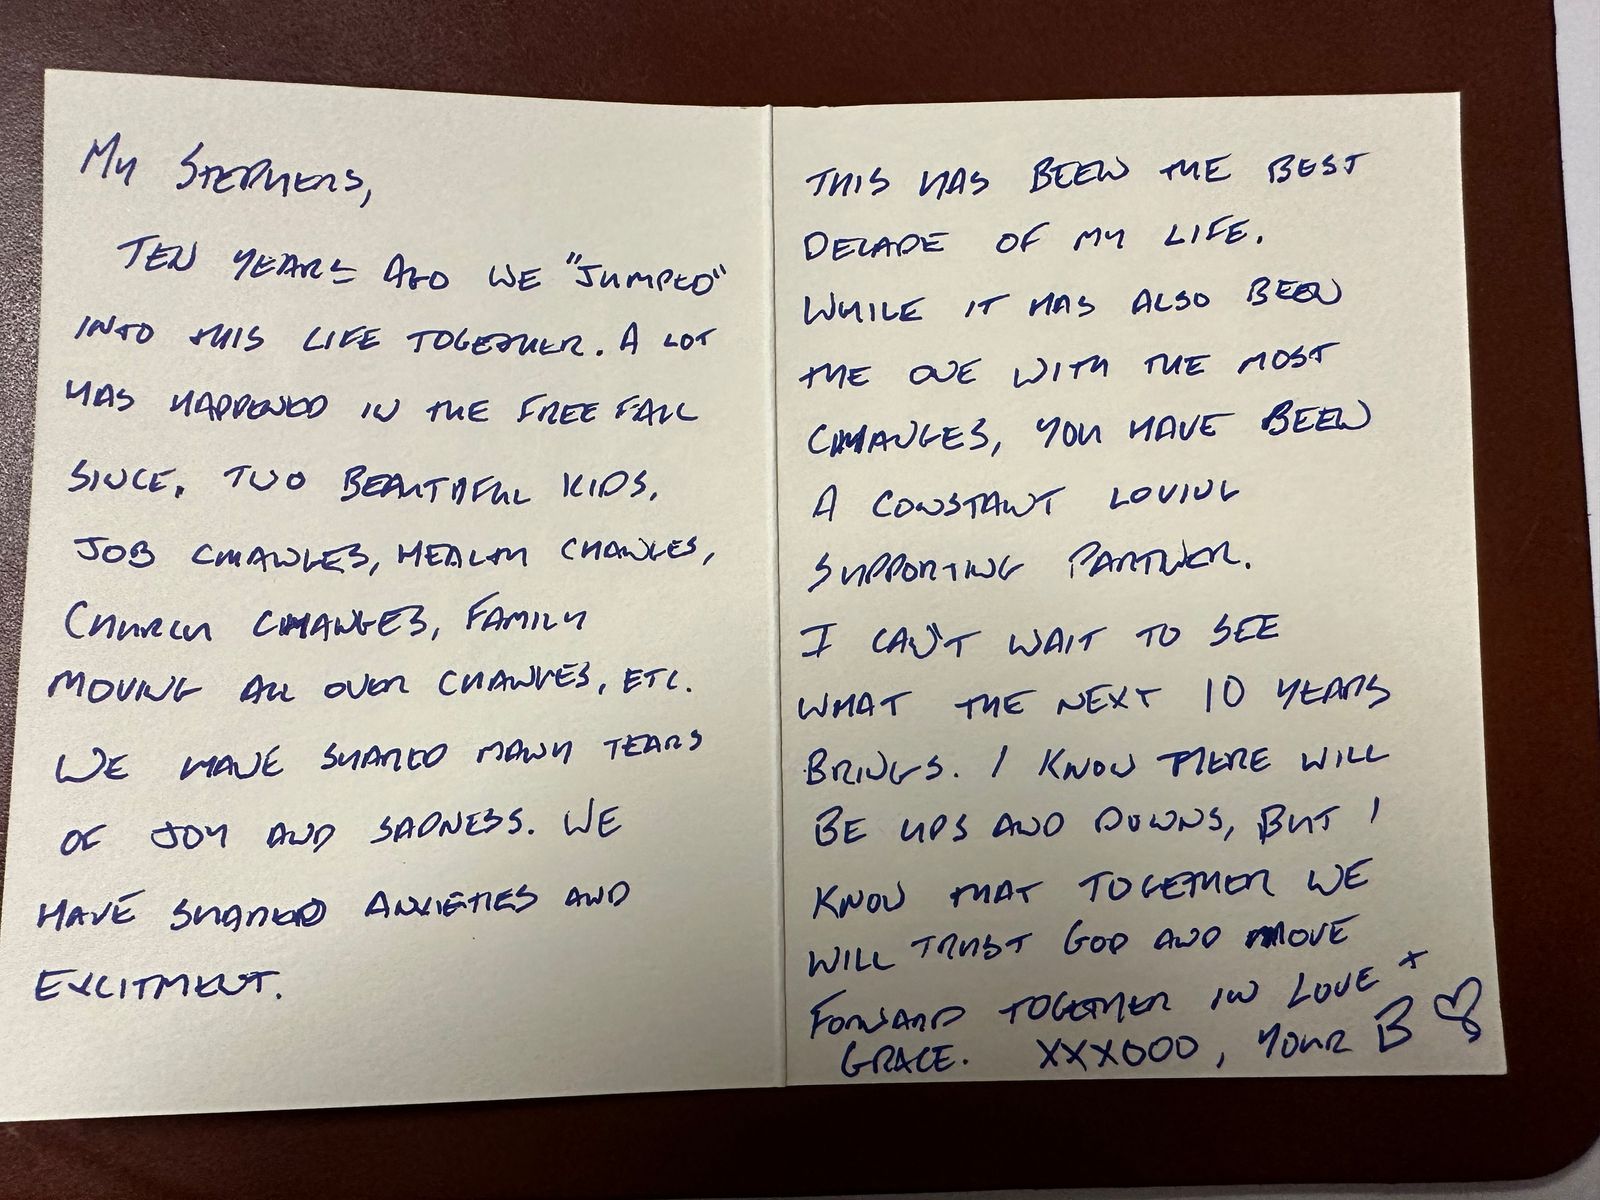 MY STEPHERS,
TEN YEARS AGO WE "JUMPED"
INTO THIS LIFE TOGETHER. A LOT
HAS HAPPENED IN THE FREE FALL
SINCE. TWO BEAUTIFUL KIDS,
JOB CHANGES, HEALTH CHANGES,
CHURCH CHANGES, FAMILY
MOVING ALL OVER CHANGES, ETC.
WE HAVE SHARED MANY TEARS
OF JOY AND SADNESS. WE
HAVE SHARED ANXIETIES AND
EXCITMENT.
THIS HAS BEEN THE BEST
DECADE OF MY LIFE.
WHILE IT HAS ALSO BEEN
THE ONE WITH THE MOST
CHANGES, YOU HAVE BEEN
A CONSTANT LOVING
SUPPORTING PARTNER.
I CAN'T WAIT TO SEE
WHAT THE NEXT 10 YEARS
BRINGS. I KNOW THERE WILL
BE UPS AND DOWNS, BUT I
KNOW THAT TOGETHER WE
WILL TRUST GOD AND MOVE
FORWARD TOGETHER IN LOVE +
GRACE. XXXOOO, YOUR B ♡